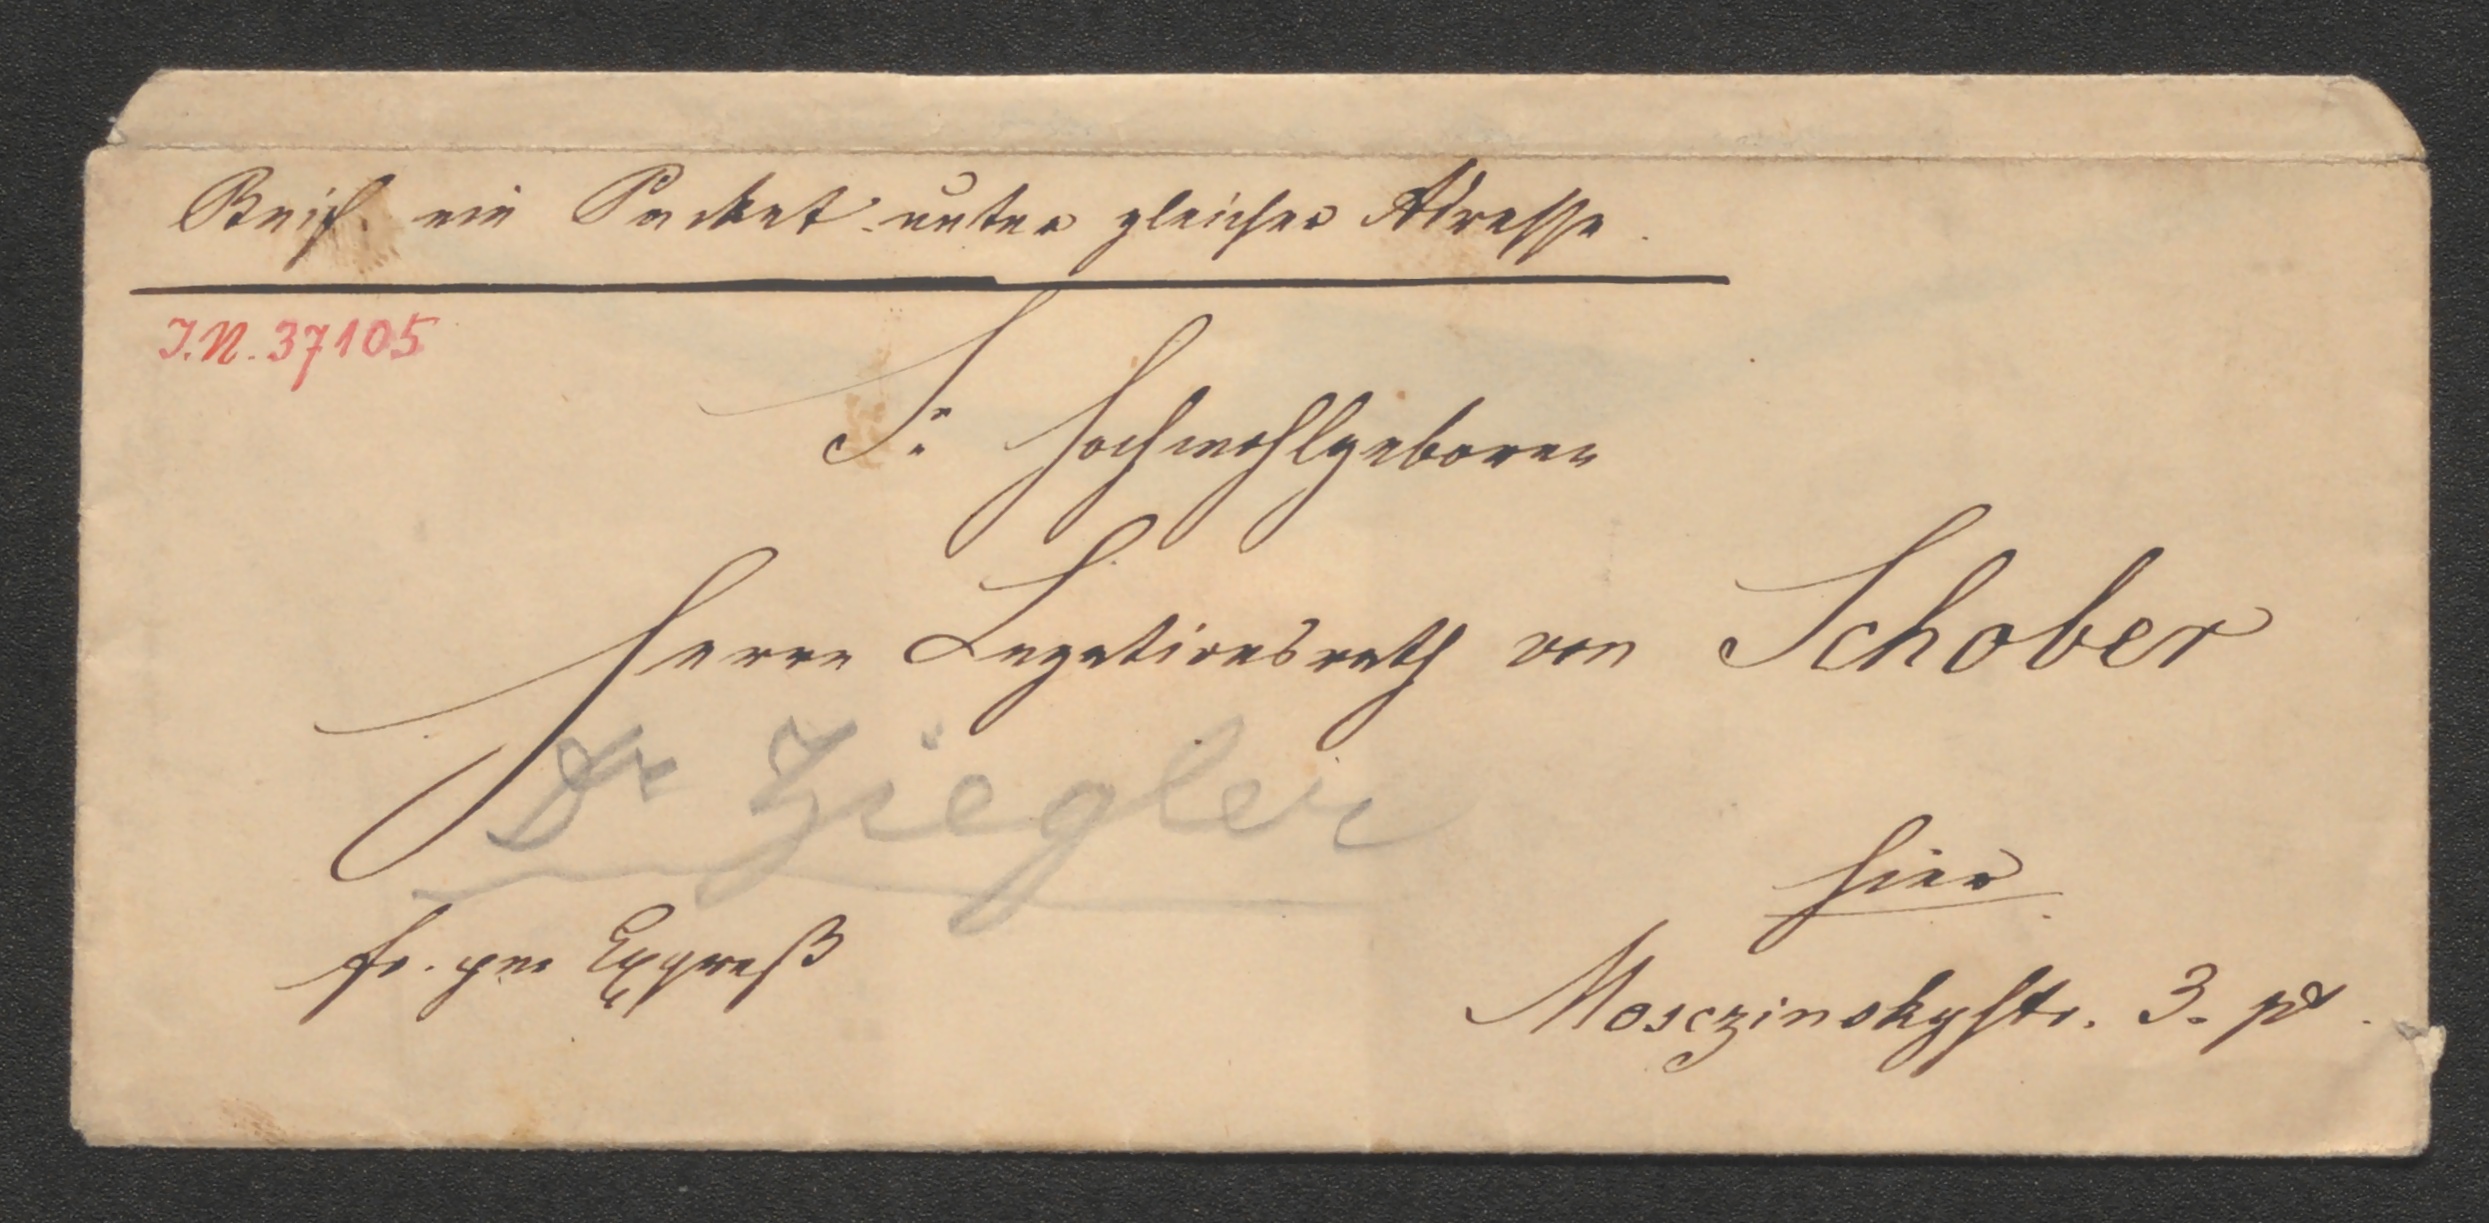 Beifl. ein Packet unter gleicher Adresse.
J.N. 37105
Sr. Hochwohlgeboren
Herrn Legationsrath von Schober
Dr Ziegler
hier
fr. per Expreß
Mosczinskystr. 3. pt.